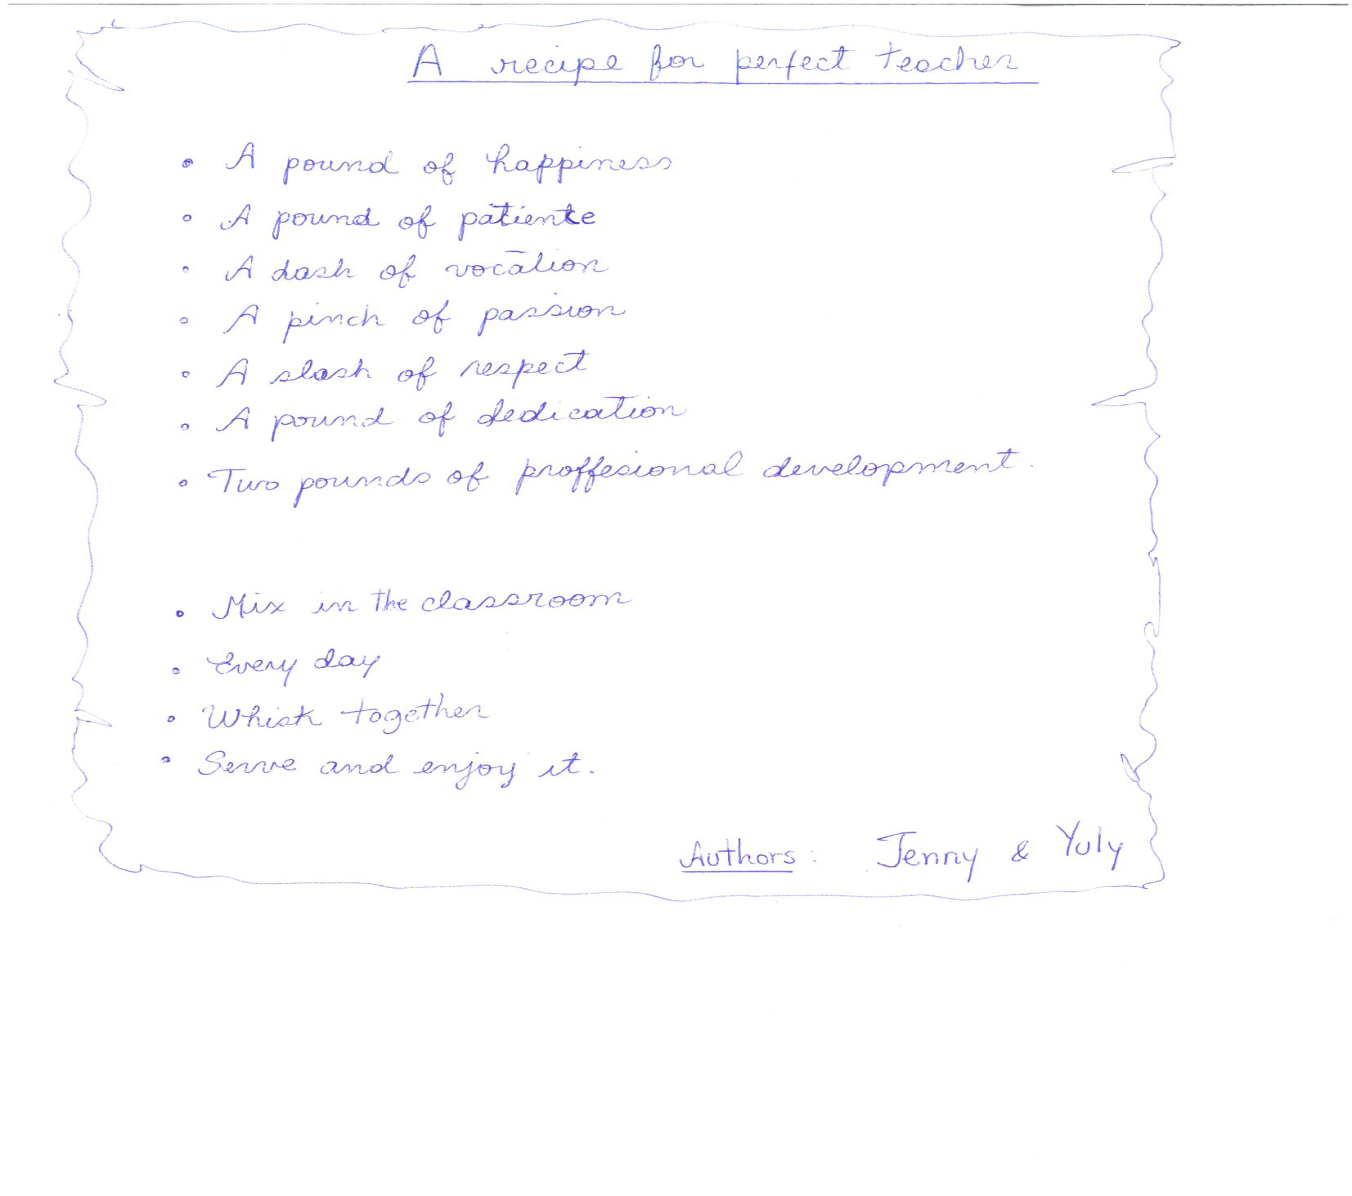 A recipe for perfect teacher
• A pound of happiness
• A pound of patiente
• A dash of vocation
• A pinch of passion
• A slash of respect
• A pound of dedication
• Two pounds of proffesional development.
• Mix in the classroom
• Every day
• Whisk together
• Serve and enjoy it.
Authors: Jenny & Yuly